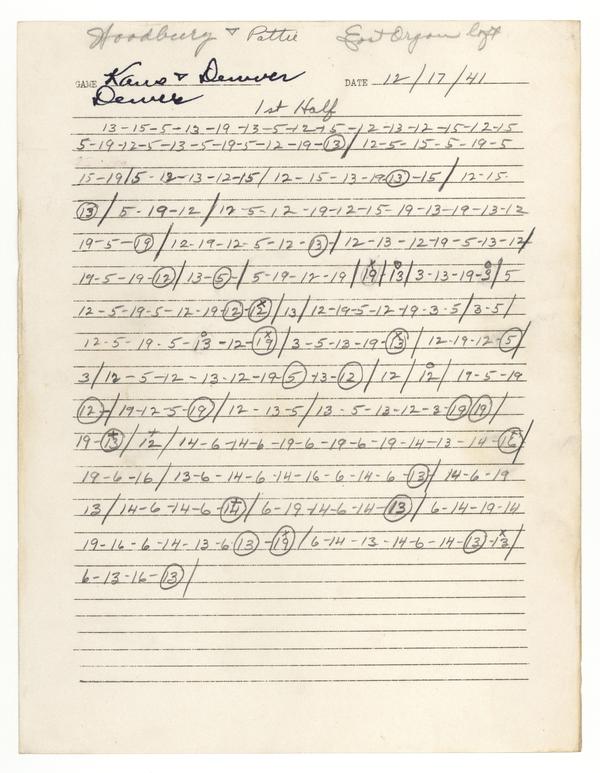 Woodbury & Pattie East Organ loft
GAME Kans & Denver DATE 12/17/41
Denver
1st Half
13-15-5-13-19-13-5-12-15-12-13-12-15-12-15
5-19-12-5-13-5-19-5-12-19-13/ 12-5-15-5-19-5
15-19/5-12-13-12-15/ 12-15-13-19-13-15/ 12-15-
13/ 5-19-12/12-5-12-19-12-15-19-13-19-13-12
19-5-19/12-19-12-5-12-13/ 12-13-12-19-5-13-12/
19-5-19-12/13-5/ 5-19-12-19/19/13/3-13-19-3/5
12-5-19-5-12-19-12-12/13/12-19-5-12-19-3-5/3-5/
12-5-19-5-13-12-19/3-5-13-19-13/ 12-19-12-5/
3/12-5-12-13-12-19-5-13-12/12/12/ 19-5-19
12/19-12-5-19/12-13-5/13-5-13-12-3-19-19/
19-13/12/14-6-14-6-19-6-19-6-19-14-13-14-16/
19-6-16/13-6-14-6-14-16-6-14-6-13/ 14-6-19
13/14-6-14-6-14/6-19-14-6-14-13/ 6-14-19-14
19-16-6-14-13-6-13-19/6-14-13-14-6-14-13-13/
6-13-16-13/